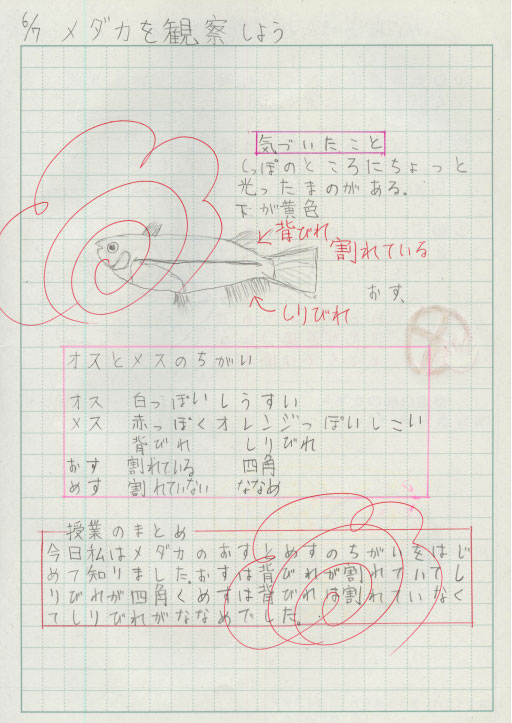 6/7 メダカを観察しよう
気づいたこと
しっぽのところにちょっと
光ったまのがある。
下が黄色
背びれ
割れている
おす、
しりびれ
オスとメスのちがい
オス 白っぽいしうすい
メス 赤っぽくオレンジっぽいしこい
背びれ しりびれ
おす 割れている 四角
めす 割れていない ななめ
授業のまとめ
今日私はメダカのおすとめすのちがいをはじ
めて知りました。おすは背びれが割れていてし
りびれが四角くめすは背びれは割れていなく
てしりびれがななめでした。